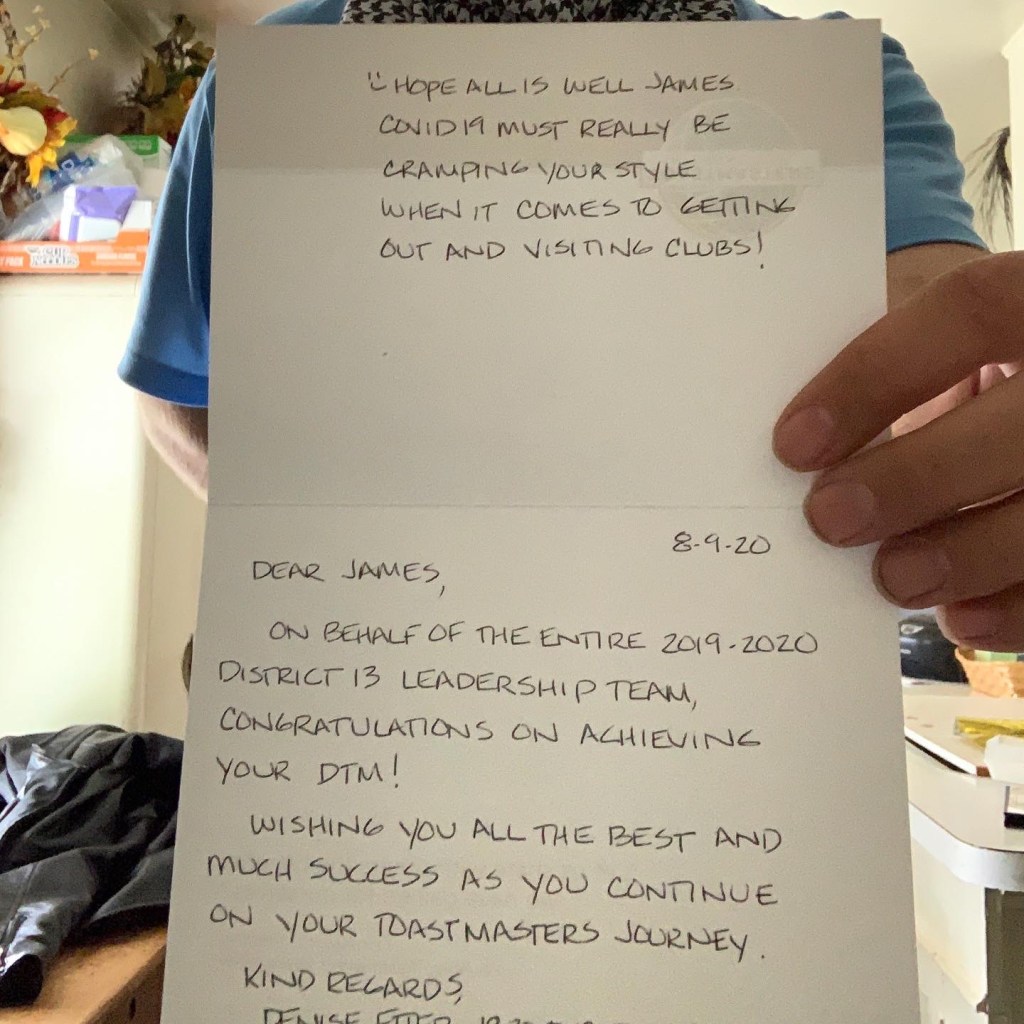 Hope all is well James
COVID19 must really be
cramping your style
when it comes to getting
out and visiting clubs!
8-9-20
Dear James,
On behalf of the entire 2019-2020
District 13 Leadership Team,
Congratulations on achieving
your DTM!
Wishing you all the best and
much success as you continue
on your Toastmasters journey.
Kind regards,
Denise